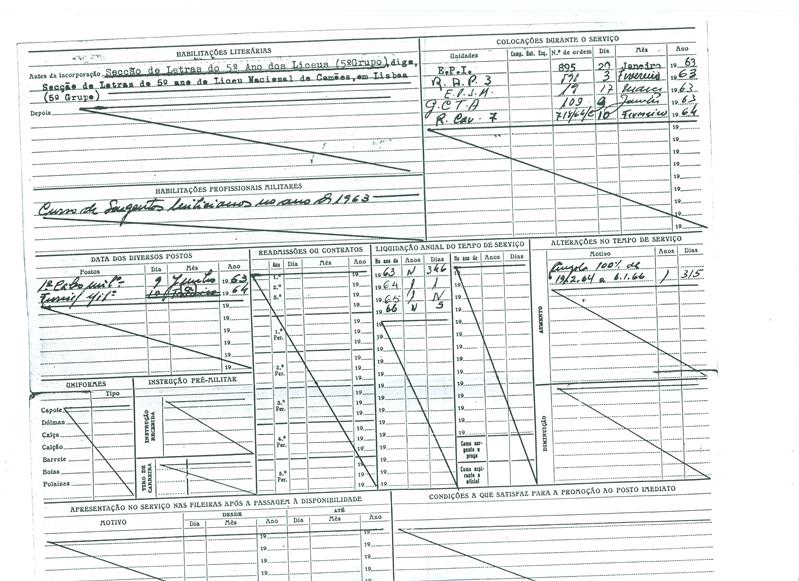 HABILITAÇÕES LITERÁRIAS
Antes da incorporação Secção de Letras do 5º Ano dos Liceus (5ºGrupo), digo,
Secção de Letras de 5º ano de Liceu Nacional de Camões, em Lisboa
(5º Grupo)
Depois
HABILITAÇÕES PROFISSIONAIS MILITARES
Curso de Sargentos Milicianos no ano de 1963
COLOCAÇÕES DURANTE O SERVIÇO
Unidades Comp. Bat. Esq. N.º de ordem Dia Mês Ano
E.P.I. 895 20 Janeiro 1963
R. A. P. 3 3 Fevereiro 1963
E.P.S.M. 19 17 1963
G.C.T.A 109 9 1963
R. Cav. 7 10 Fevereiro 1964
19
19
19
19
19
19
19
DATA DOS DIVERSOS POSTOS
Postos Dia Mês Ano
1º Cabo milº 9 1963
10 1964
19
19
19
19
19
READMISSÕES OU CONTRATOS
Dia Mês Ano
1.º 19
2.º 19
3.º 19
1.º Per.
2.º Per.
3.º Per.
4.º Per.
5.º Per.
LIQUIDAÇÃO ANUAL DO TEMPO DE SERVIÇO
No ano de Anos Dias No ano de Anos Dias
1963 N 346
1964 1
1965 1 N
1966 N 5
Como sargento e praça
Como aspirante a oficial
ALTERAÇÕES NO TEMPO DE SERVIÇO
Motivo Anos Dias
AUMENTO
Angola 100% de
19.2.64 a 6.1.66 1 315
DIMINUIÇÃO
UNIFORMES
Tipo
Capote
Dólman
Calça
Calção
Barrete
Botas
Polainas
INSTRUÇÃO PRÉ-MILITAR
INSTRUÇÃO RECEBIDA
TIRO DE CARREIRA
APRESENTAÇÃO NO SERVIÇO NAS FILEIRAS APÓS A PASSAGEM À DISPONIBILIDADE
MOTIVO DESDE ATÉ
Dia Mês Ano Dia Mês Ano
19 19
19 19
19 19
19 19
CONDIÇÕES A QUE SATISFAZ PARA A PROMOÇÃO AO POSTO IMEDIATO